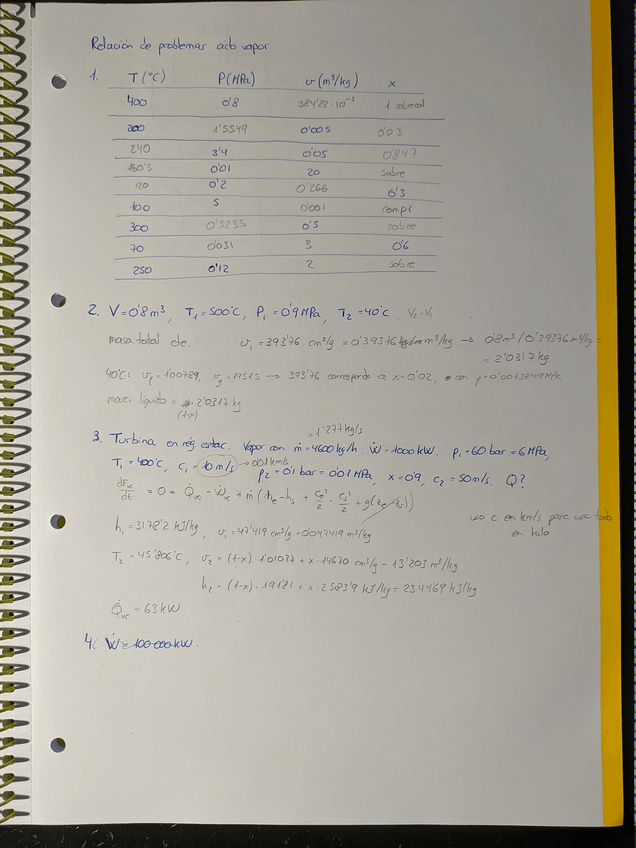 Relación de problemas ciclo vapor
1. T (°C) P (MPa) v (m³/kg) x
400 0'8 384'22·10⁻³ 1 sobrecal
200 1'5549 0'005 0'03
240 3'4 0'05 0'847
160'5 0'01 20 sobre
120 0'2 0'266 0'3
100 5 0'001 compr
300 0'5235 0'5 sobre
70 0'031 3 0'6
250 0'12 2 sobre
2. V=0'8m³, T₁=500°C, P₁=0'9MPa, T₂=40°C. V₂=V₁
masa total de. v₁=393'76 cm³/g=0'39376 m³/kg → 0'8m³/0'39376 m³/kg=
=2'0317kg
40°C: vf=1'00789, vg=19515 → 393'76 corresponde a x=0'02, con p=0'0073849MPa
masa líquido = 2'0317 kg
(1-x)
=1'277kg/s
3. Turbina en rég. estac. Vapor con ṁ=4600kg/h. Ẇ=1000kW. p₁=60 bar=6MPa,
T₁=400°C, c₁=10m/s→0'01km/s p₂=0'1 bar=0'01MPa, x=0'9, c₂=50m/s. Q?
dEvc/dt = 0 = Q̇vc - Ẇvc + ṁ(he-hs + ce²/2 - cs²/2 + g(ze-zs))
uso c en km/s para que todo
en kilo
h₁=3178'2 kJ/kg, v₁=47'419 cm³/g=0'047419m³/kg
T₂=45'806°C, v₂=(1-x)·1'01027+x·14670 cm³/g=13'203m³/kg
h₂=(1-x)·191'81+x·2583'9 kJ/kg=2344'69 kJ/kg
Q̇vc=63kW
4. Ẇ=100 000kW.